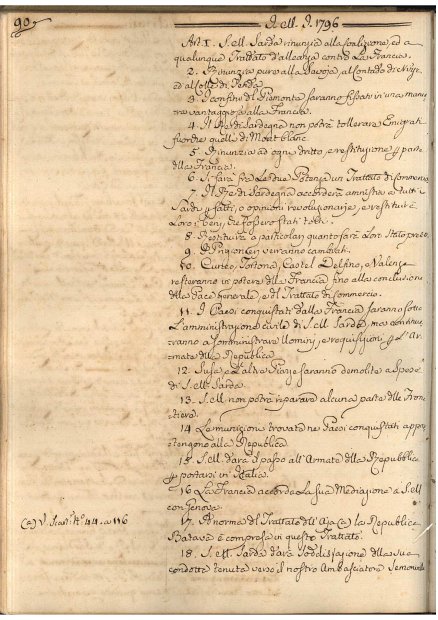 90
Nell' A. 1796
Art. 1. S. M. Sarda rinunzia alla Coalizione, ed a
qualunque Trattato d'alleanza contro la Francia.
2. Rinunzia pure alla Savoja, al Contado di Nizza,
ed al Colle di Tenda.
3. I confini di Piemonte saranno fissati in una mani
era vantaggiosa alla Francia.
4. Il Re di Sardegna non potrà tollerare Emigrati
fuorchè quelli di Mont blanc
5. Rinunzia ad ogni dritto, e restituzione p parte
della Francia.
6. Si farà fra le due Potenze un Trattato di Commercio
7. Il Re di Sardegna accorderà amnistia a tutti i
Sardi p fatti, o opinioni revoluzionarie, e restituirà
Loro i beni, che fossero stati tolti.
8. Restituirà a particolari quanto sarà Loro stato preso.
9. I Prigionieri verranno cambiati.
10. Cuneo, Tortona, Castel Delfino, e Valenza
resteranno in potere della Francia fino alla conclusione
della Pace generale, e del Trattato di Commercio.
11. I Paesi conquistati dalla Francia saranno sotto
L'amministrazione civile di S. M. Sarda, ma continue
ranno a somministrare Uomini, e requisizioni p L'Ar
mata della Repubblica
12. Susa, e L'altre Piazze saranno demolite a spese
di S. M. Sarda.
13. S. M. non potrà riparare alcuna parte delle Fron
tiere.
14. Le munizioni trovate ne' Paesi conquistati appar
tengono alla Repubblica
15. S. M. darà il passo all'Armate della Repubblica
p portarsi in Italia.
16. La Francia accorda la sua Mediazione a S. M.
con Genova.
(a) V. Stor. N.º 44. a 116
17. A norma del Trattato dell'Aja (a) la Repubblica
Batava è compresa in questo Trattato.
18. S. M. Sarda darà soddisfazione della sua
condotta tenuta verso il nostro Ambasciatore Semonville